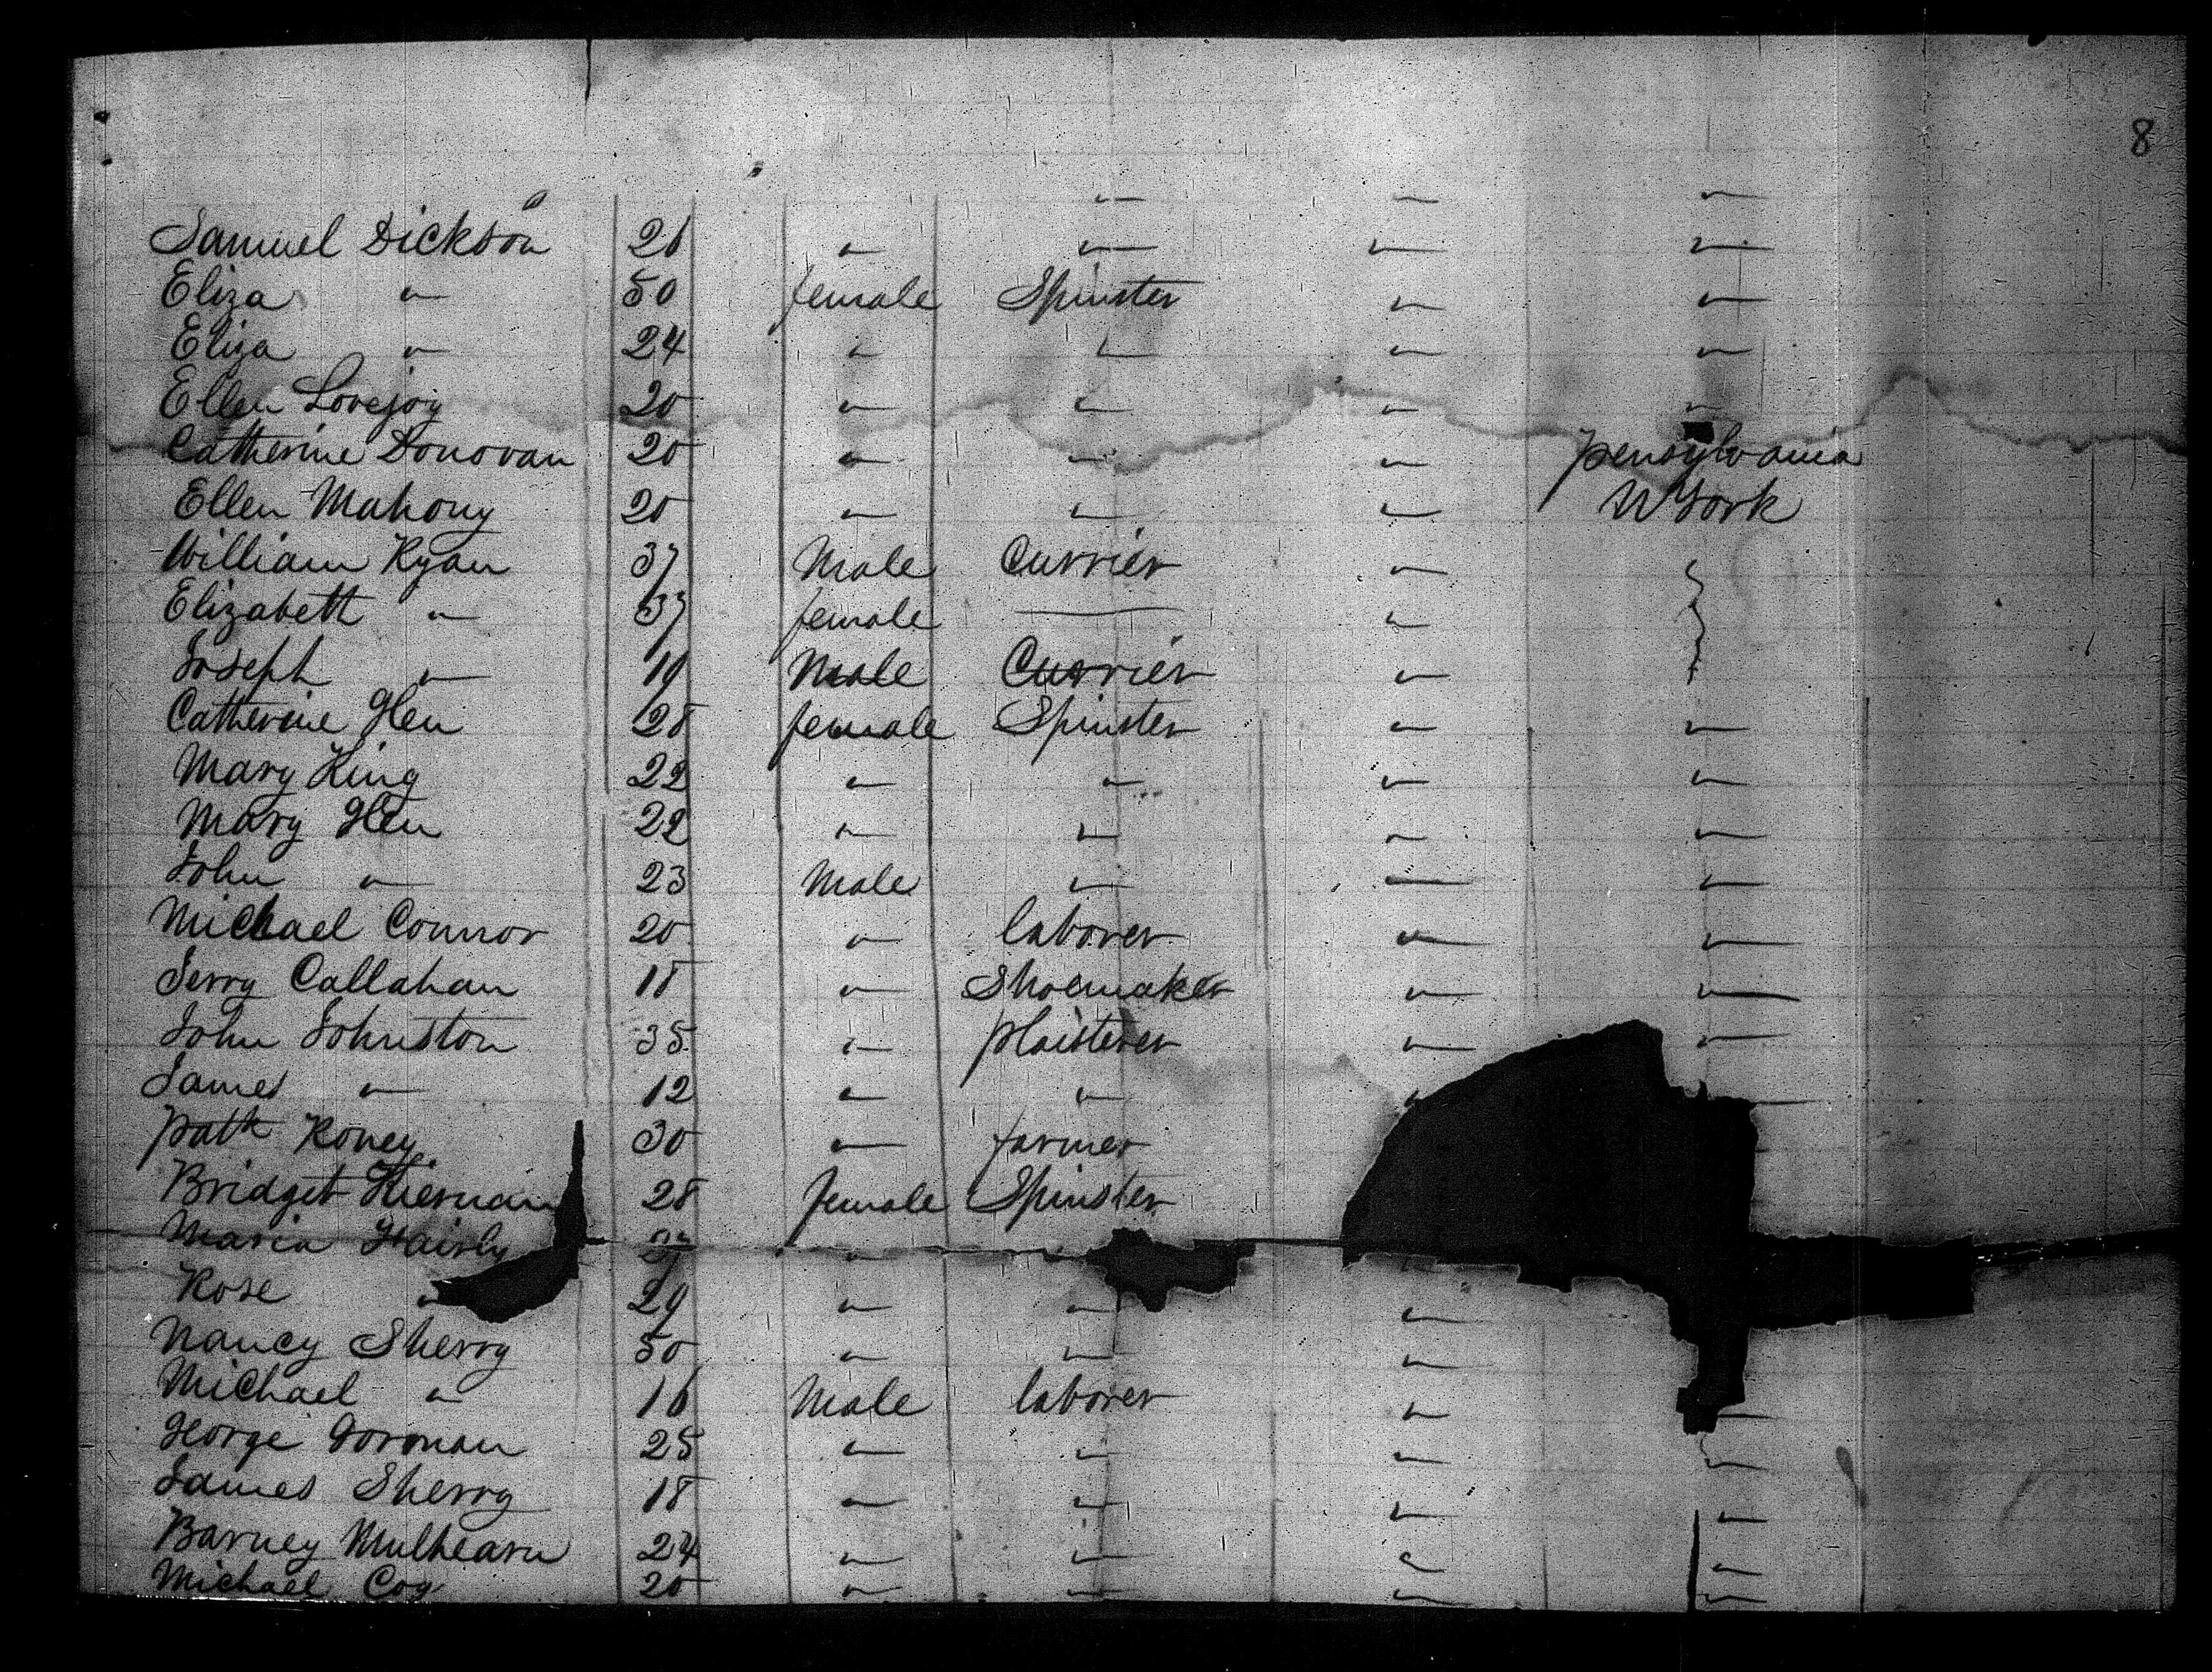 8
" " "
Samuel Dickson 26 " " " "
Eliza " 50 female Spinster " "
Eliza " 24 " " " "
Ellen Lovejoy 20 " " " "
Catherine Donovan 20 " " " pensylvania
Ellen Mahony 20 " " " N York
William Ryan 37 Male Currier "
Elizabeth " 37 female — "
Joseph " 19 Male Currier "
Catherine Glen 28 female Spinster " "
Mary King 22 " " " "
Mary Glen 22 " " " "
John " 23 Male " " "
Michael Connor 20 " laborer " "
Jerry Callahan 18 " Shoemaker " "
John Johnston 35 " plaisterer " "
James " 12 " " "
patk Roney 30 " farmer
Bridget Kiernan 28 female Spinster
Maria "
Rose " 29 " " "
Nancy Sherry 50 " " "
Michael " 16 Male laborer " "
George Goronan 25 " " " "
James Sherry 18 " " " "
Barney Mulhearn 24 " " " "
Michael Coy 20 " " " "